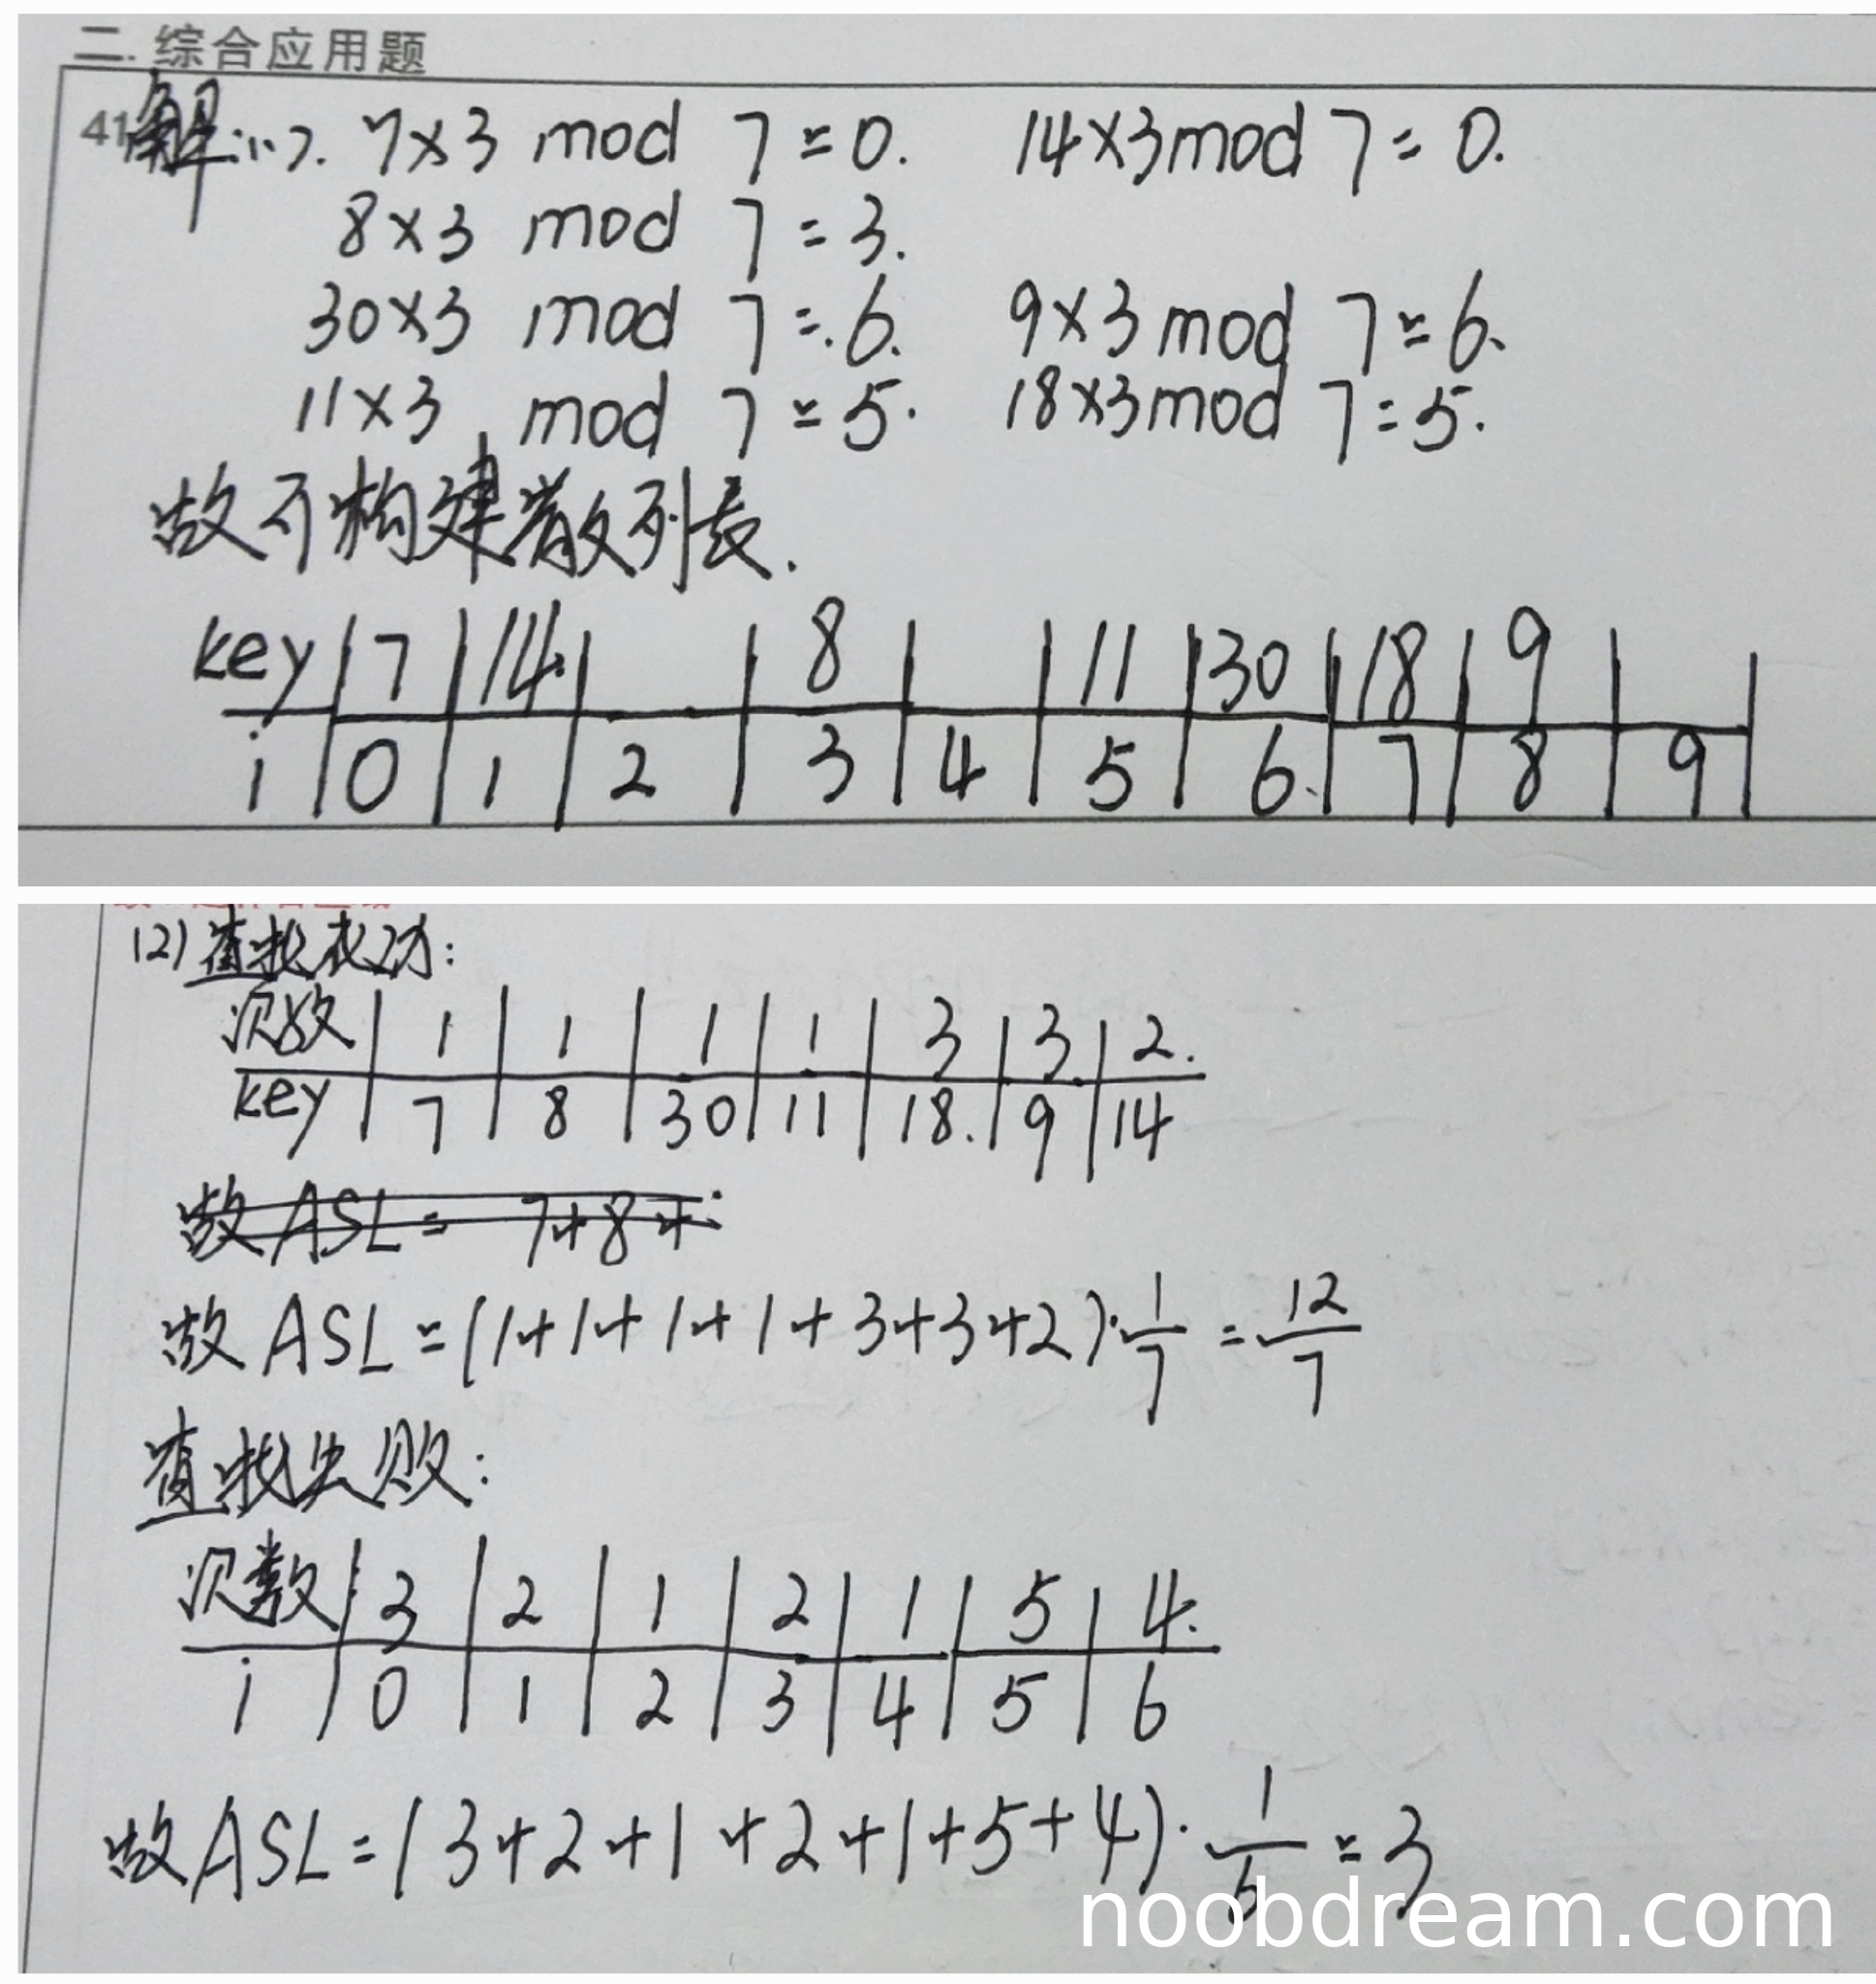 二.综合应用题
41 解:(1). 7×3 mod 7=0. 14×3mod 7=0.
8×3 mod 7=3.
30×3 mod 7=.6. 9×3 mod 7=6.
11×3 mod 7=5. 18×3mod 7=5.
故可构建散列表.
key 7 14. 8 11 30 18 9
i 0 1 2 3 4 5 6. 7 8 9
(2)查找成功:
次数 1 1 1 1 3 3. 2.
key 7 8 30 11 18. 9 14
故ASL= 7+8+
故ASL=(1+1+1+1+3+3+2)·1/7 =12/7
查找失败:
次数 3 2 1 2 1 5 4.
i 0 1 2 3 4 5 6
故ASL=(3+2+1+2+1+5+4)·1/6=3
noobdream.com